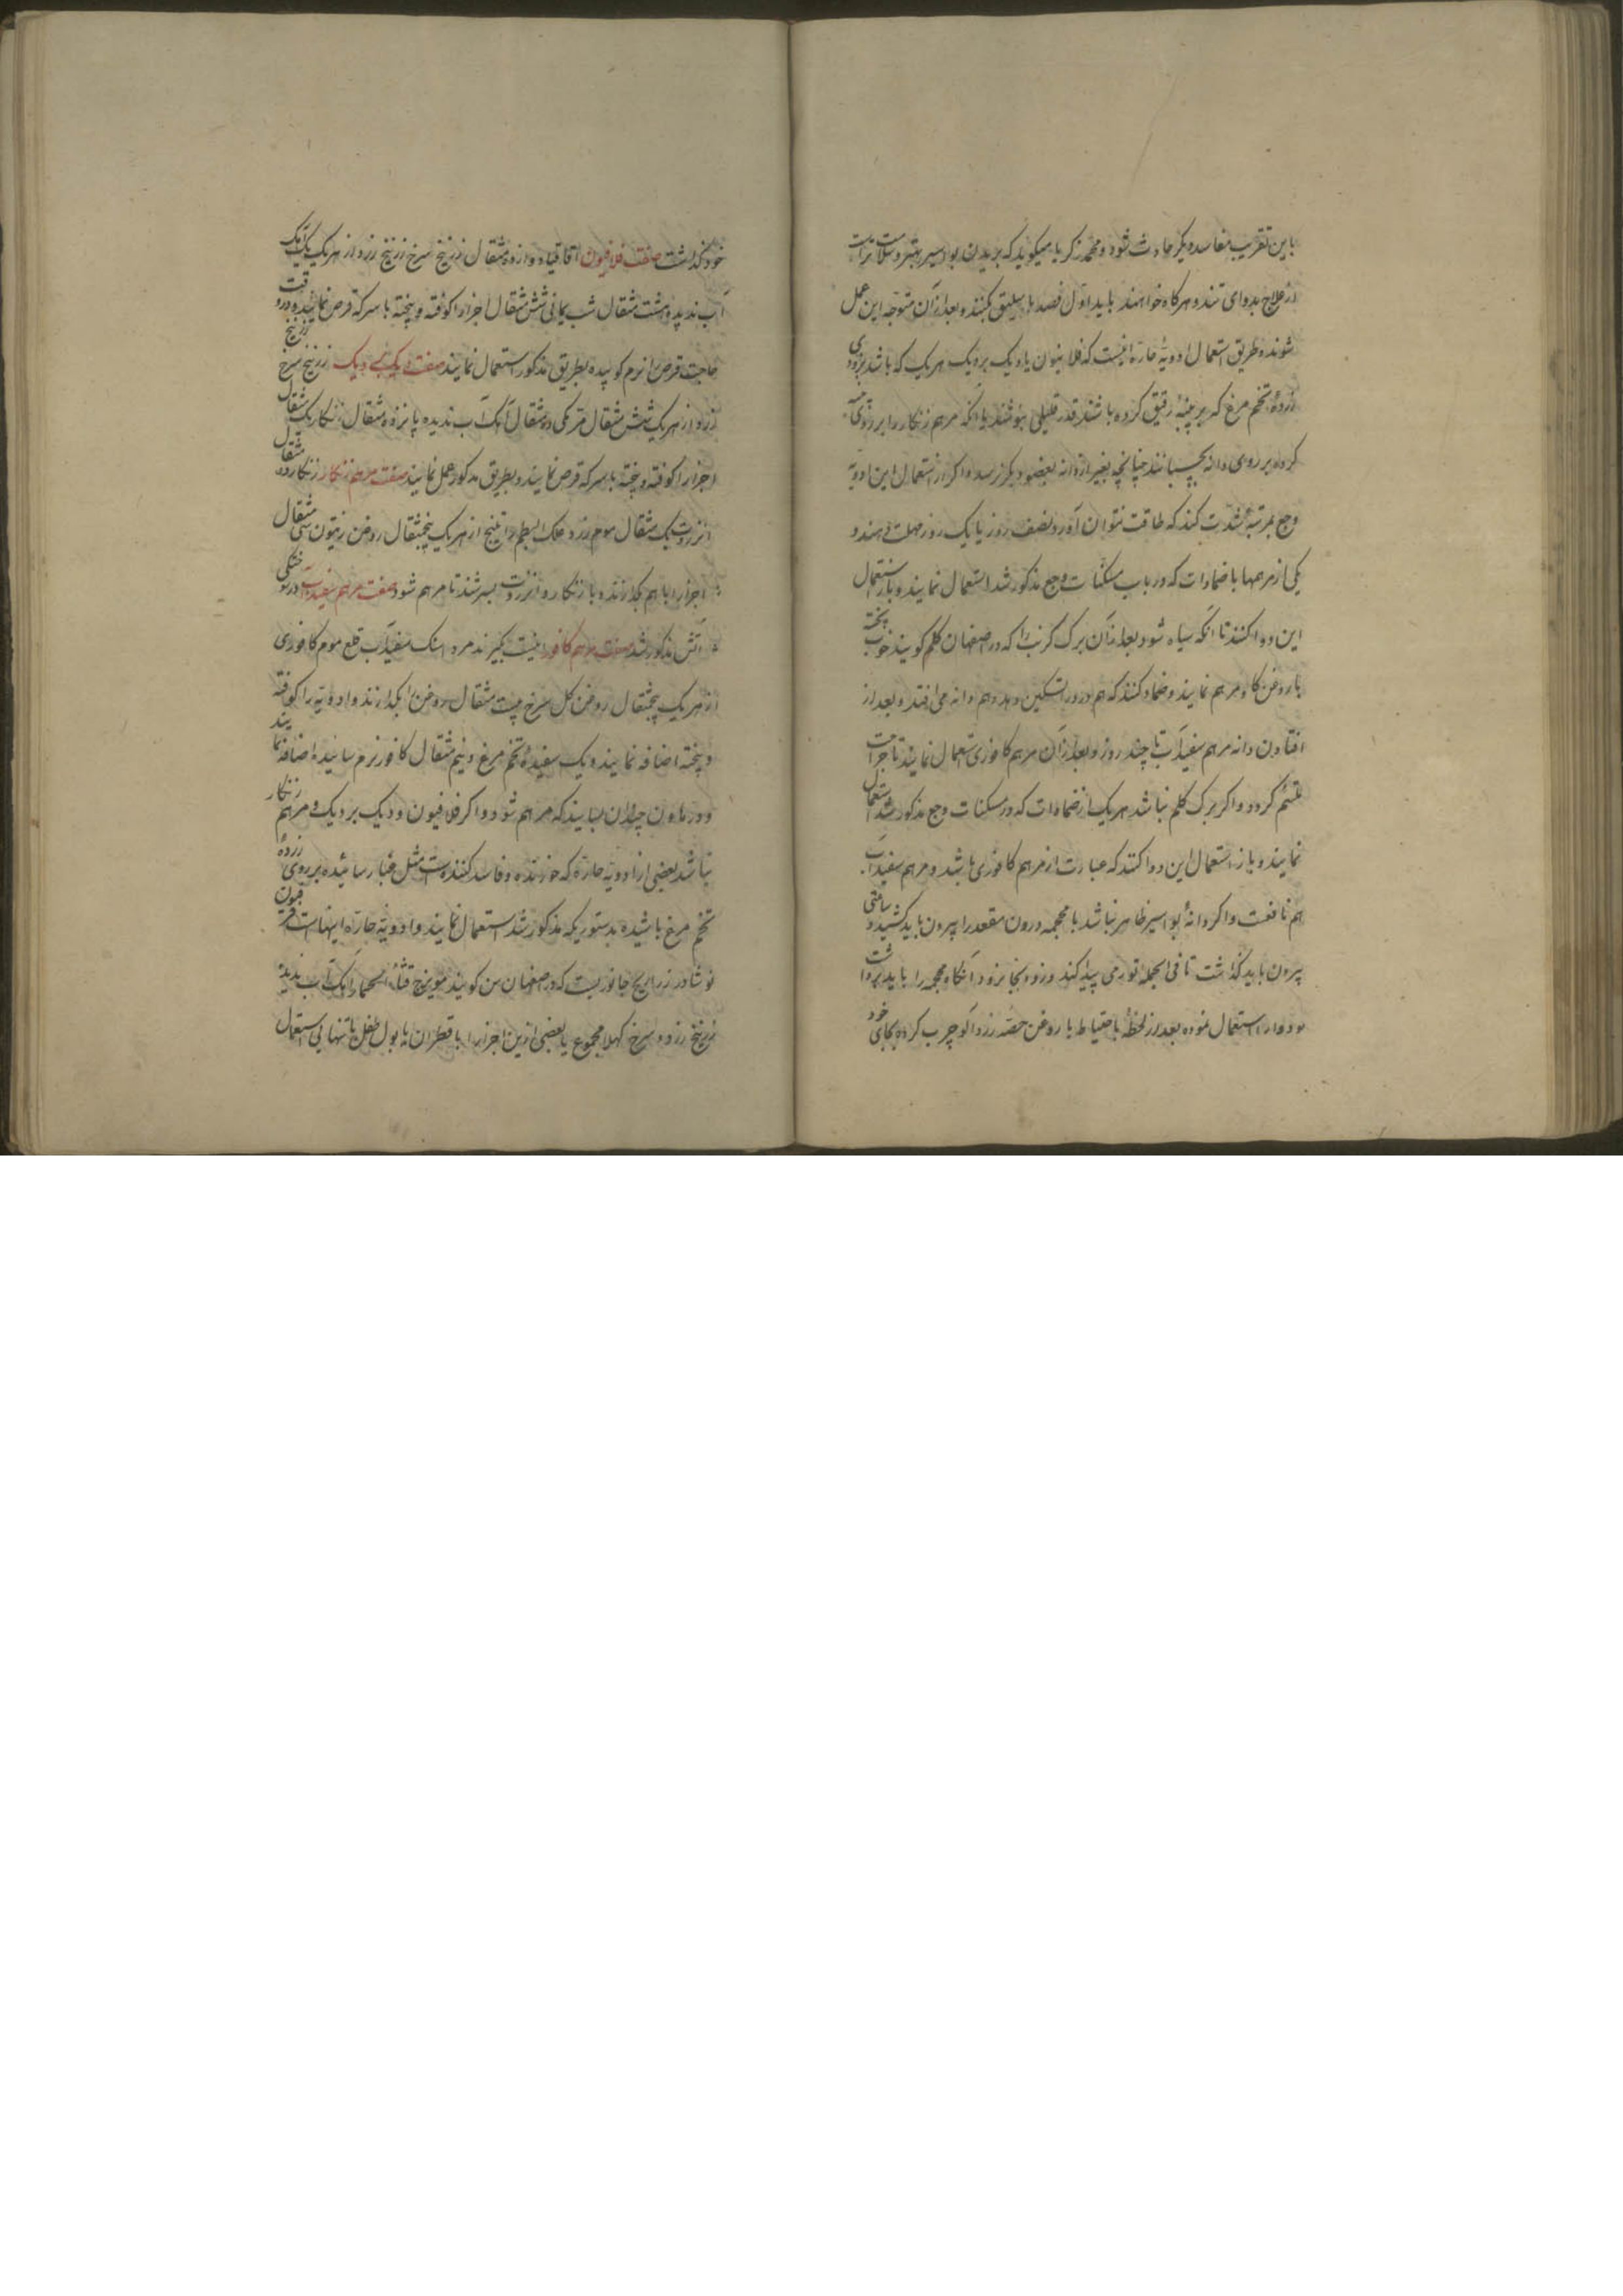 باین تقریب مفاسد دیگر حادث شود و محمد زکریا میکوید که بریدن بواسیر بهتر و سلامت تراست
از علاج بدوای تند و هرکاه خواهند باید اول فصد باسلیق بکنند و بعد از آن متوجه این عمل
شوند و طریق استعمال ادویهٔ حاره اینست که فلافیون یا دیک بردیک هریک که باشد بزودی
زردهٔ تخم مرغ که بر پنبهٔ رقیق کرده باشند قدر قلیلی بپوشند یا آنکه مرهم زنکار را بر روی
کرده بر روی دانه بچسبانند چنانچه بغیر از دانه بعضو دیکر نرسد و اکر از استعمال این ادویه
وجع بمرتبهٔ شدت کند که طاقت نتوان آورد نصف روز یا یک روز مهلت دهند و
یکی از مرهمها یا ضمادات که در باب مسکنات وجع مذکور شد استعمال نمایند و باز استعمال
این دوا کنند تا آنکه سیاه شود بعد از آن برک کرنب را که در اصفهان کلم کویند خوب پخته
با روغن کاو مرهم نمایند و ضماد کنند که هم درد را تسکین دهد و هم دانه می افتد و بعد از
افتادن دانه مرهم سفیداب تا چند روز و بعد از آن مرهم کافوری استعمال نمایند تا جراحت
ملتئم کردد و اکر برک کلم نباشد هریک از ضمادات که در مسکنات وجع مذکور شد استعمال
نمایند و باز استعمال این دوا کنند که عبارت از مرهم کافوری باشد و مرهم سفیداب
هم نافعست و اکر دانهٔ بواسیر ظاهر نباشد با محجمه درون مقعد را بیرون باید کشید و ساعتی
بیرون باید کذاشت تا فی الجمله تورمی پیدا کند و زود بجا نرود آنکاه محجمه را باید برداشت
و دوا را استعمال نموده بعد از لحظهٔ باحتیاط با روغن هسته زردآلو چرب کرده بجای خود
خود کذاشت صفت فلافیون اقاقیا دوازده مثقال زرنیخ سرخ زرنیخ زرد از هریک یک آهک
آب ندیده هشت مثقال شب یمانی شش مثقال اجزا را کوفته و پخته با سرکه قرص نمایند و در وقت
حاجت قرص را نرم کوبیده بطریق مذکور استعمال نمایند صفت دیک بردیک زرنیخ سرخ زرنیخ
زرد از هریک شش مثقال مرمکی ده مثقال آهک آب ندیده پانزده مثقال زنکار یک مثقال
اجزا را کوفته و پخته با سرکه قرص نمایند و بطریق مذکور عمل نمایند صفت مرهم زنکار زنکار دو مثقال
انزروت یک مثقال موم زرد علک البطم راتینج از هریک پنجمثقال روغن زیتون سی مثقال
اجزا را با هم بکدازند و با زنکار و انزروت بسرشند تا مرهم شود صفت مرهم سفیداب در سوختکی
آتش مذکور شد صفت مرهم کافور اینست بکیرند مرداسنک سفیداب قلع موم کافوری
از هریک پنجمثقال روغن کل سرخ بیست مثقال روغن را بکدازند و ادویه را کوفته
و پخته اضافه نمایند و یک سفیدهٔ تخم مرغ و نیم مثقال کافور نرم سائیده اضافه نمایند
و در هاون چندان بسایند که مرهم شود و اکر فلافیون و دیک بردیک و مرهم زنکار
نباشد بعضی از ادویه حاره که خورنده و فاسد کننده است مثل غبار سائیده بر روی زردهٔ
تخم مرغ پاشیده بدستوریکه مذکور شد استعمال نمایند و ادویهٔ حاره اینهاست فرفیون
نوشادر زراریح جانوریست که در اصفهان سن کویند میویزج قثاء الحمار آهک آب ندیده
زرنیخ زرد و سرخ کهلا مجموع یا بعضی ازین اجزا را با قطران یا بول طفل یا تنهایی استعمال